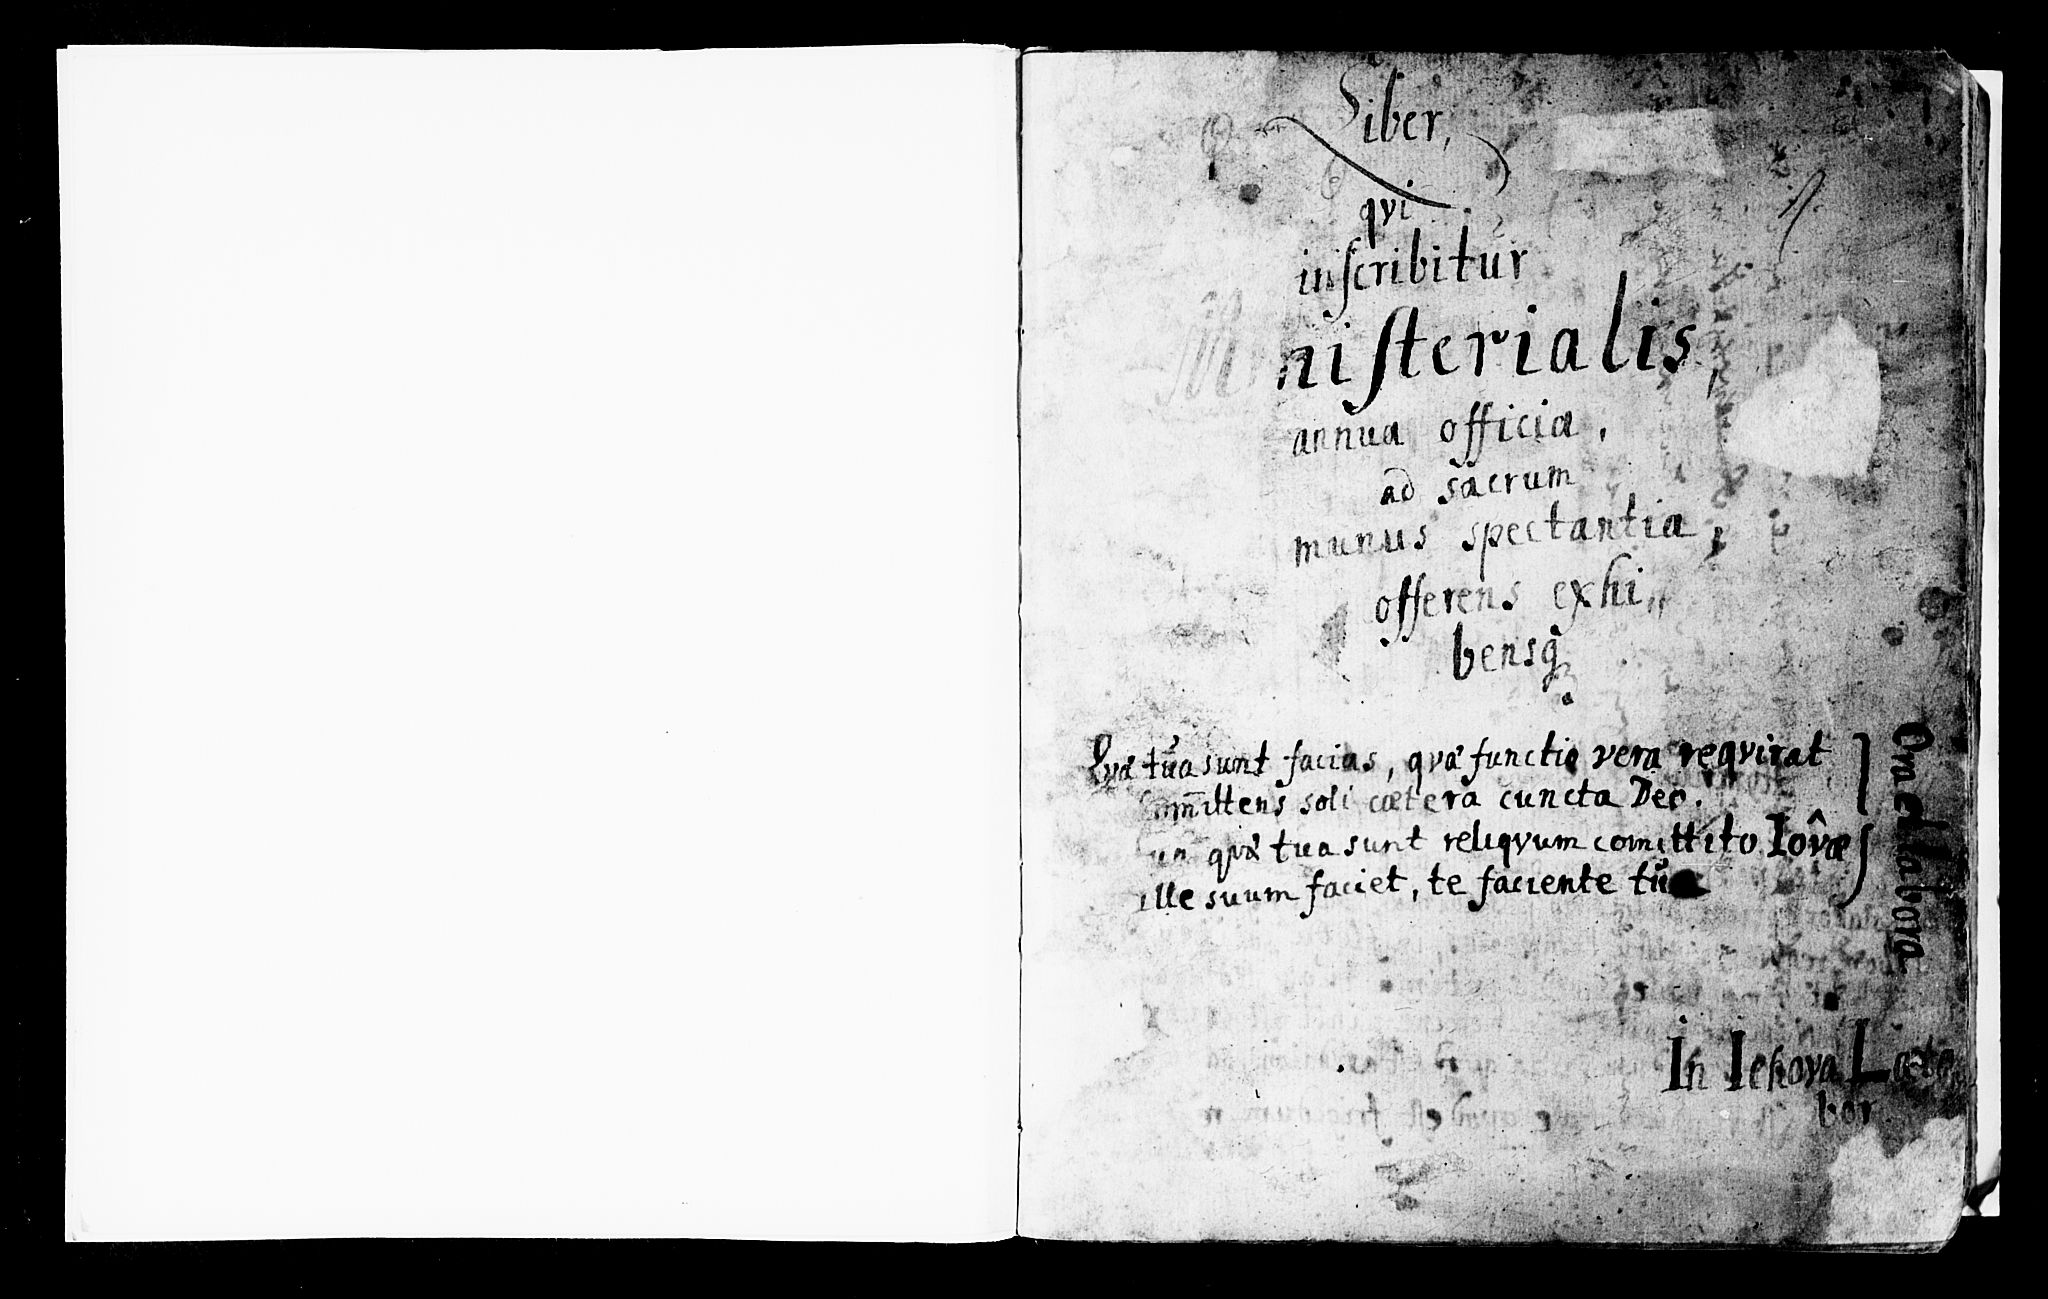 Liber,
qvi
inſcribitur
Miniſterialis,
annua officia,
ad sacrum
munus spectantia,
offerens exhi„
bensq₃.
Qvæ tua sunt facias, qvæ functio vera reqvirat
Com̅ittens soli cætera cuncta Deo.
qvæ tua sunt reliqvum comittito Iôvæ
ille suum faciet, te faciente tŭa
Ora et labora
In Iehova Læta„
bor